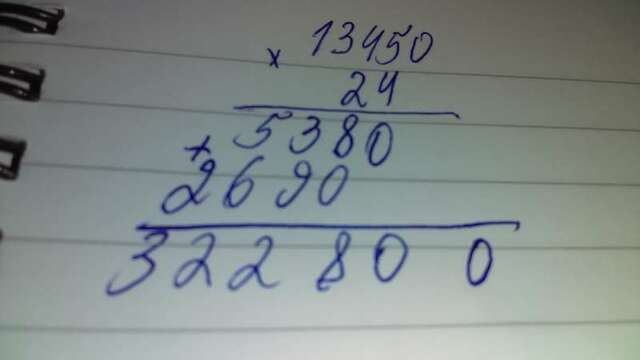 13450
× 24
5380
+ 2690
322800